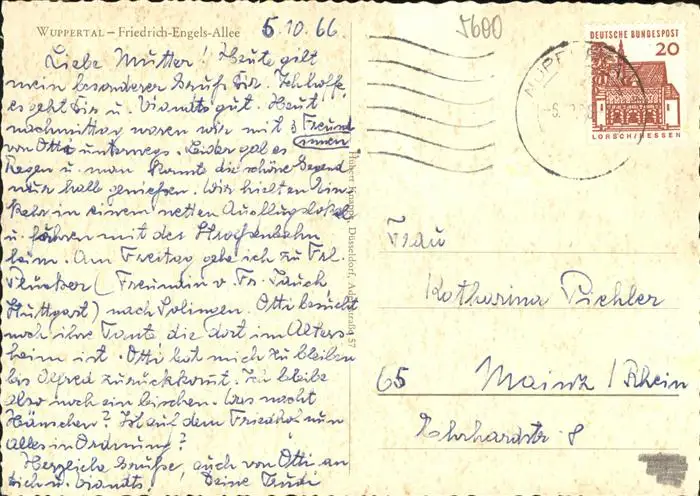 WUPPERTAL – Friedrich-Engels-Allee
5.10.66
5600
Liebe Mutter! Heute gilt
mein besonderer Gruß Dir. Ich hoffe
es geht Dir u. Viandts gut. Heut
nachmittag waren wir mit 3 Freund
innen
von Otti unterwegs. Leider gab es
Regen u. man konnte die schöne Gegend
nur halb genießen. Wir hielten Ein
kehr in einem netten Ausflugslokal
u. fuhren mit der Straßenbahn
heim. Am Freitag gehe ich zu Frl.
(Freundin v. Fr. Jauch,
Stuttgart) nach Solingen. Otti besucht
noch ihre Tante die dort im Alters
heim ist. Otti bat mich zu bleiben
bis Alfred zurückkomt. Ich bleibe
also noch ein bischen. Was macht
Hänschen? Ist auf dem Friedhof nun
alles in Ordnung?
Herzliche Grüße, auch von Otti an
dich u. Viandts! Deine Trudi
Hubert Knippel, Düsseldorf, 57
DEUTSCHE BUNDESPOST
20
LORSCH/HESSEN
Frau
Katharina Pichler
65 Mainz/Rhein
Ehrhardstr. 8